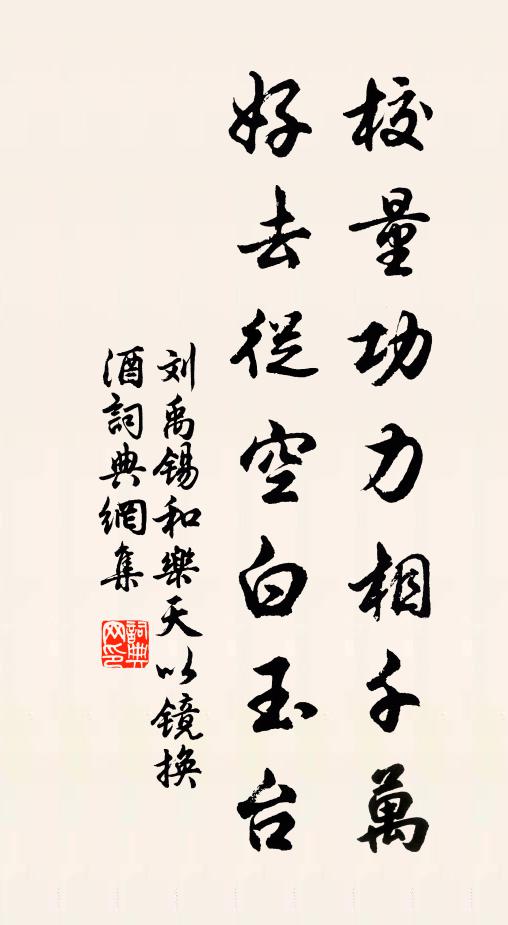 校量功力相千萬
好去從空白玉台
刘禹锡和樂天以镜換
酒詞典網集
詞典网印